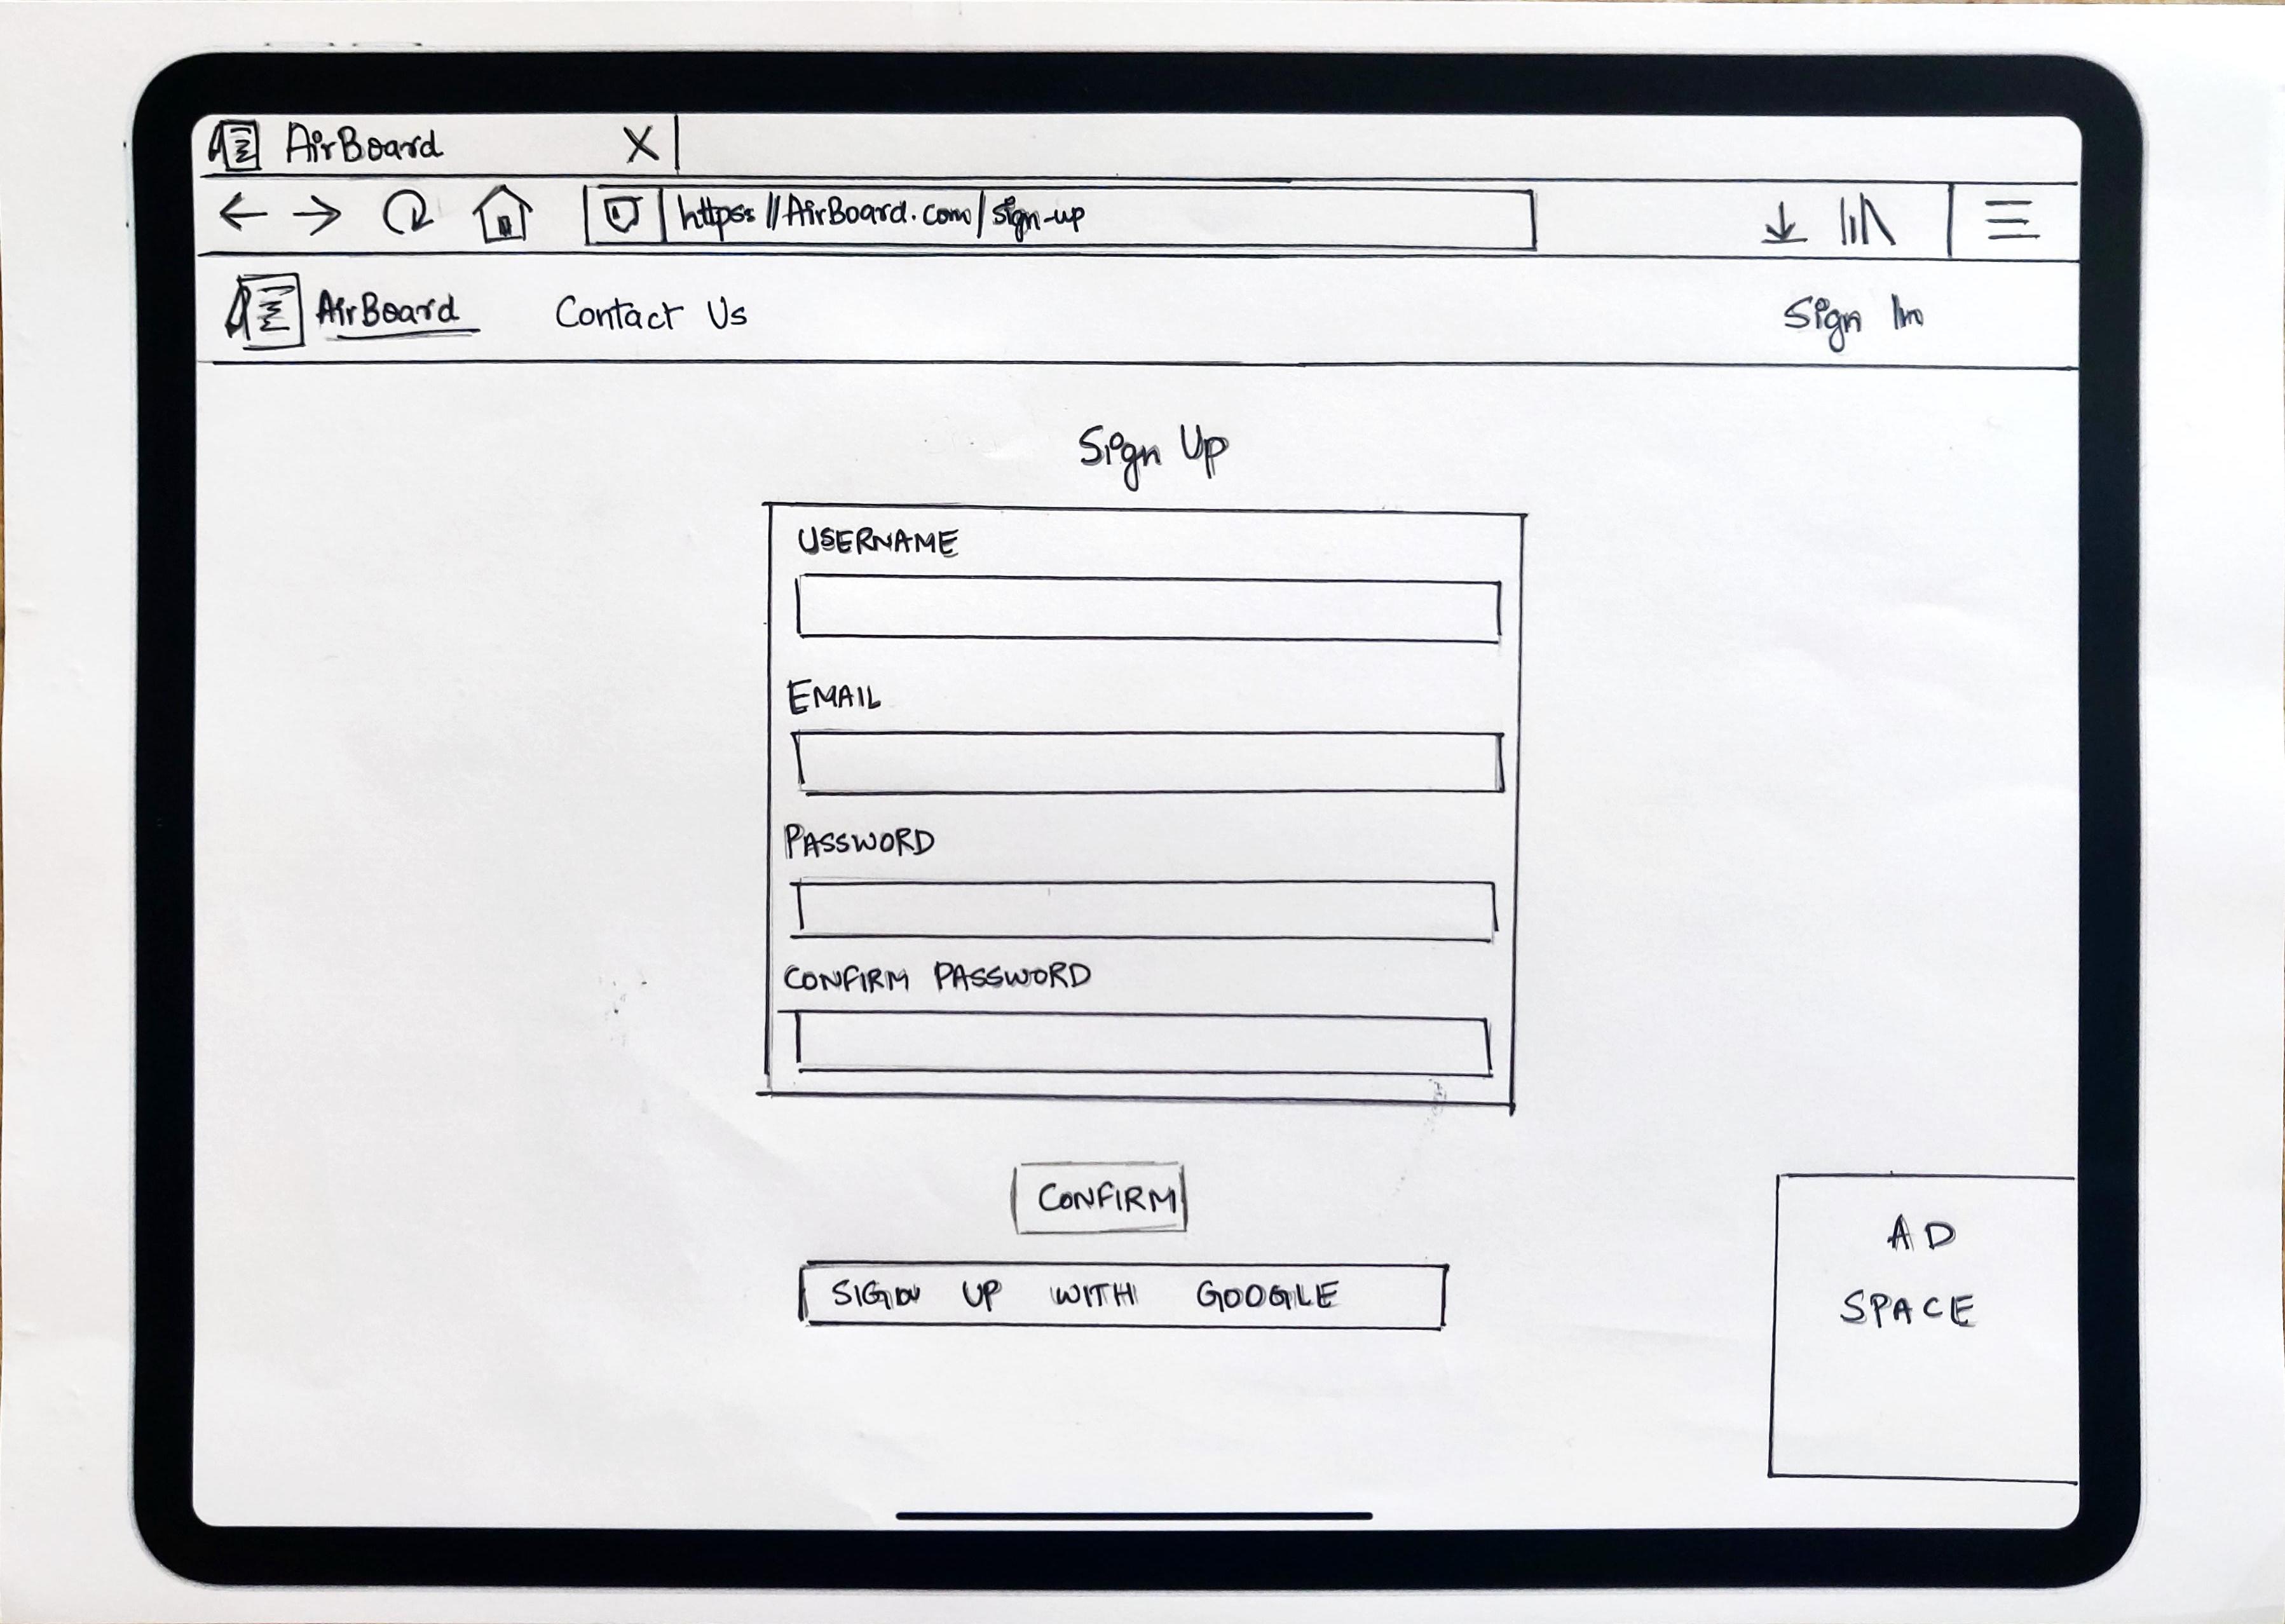 AirBoard X
https://AirBoard.com/sign-up
AirBoard Contact Us Sign In
Sign Up
USERNAME
EMAIL
PASSWORD
CONFIRM PASSWORD
CONFIRM
SIGN UP WITH GOOGLE
AD
SPACE